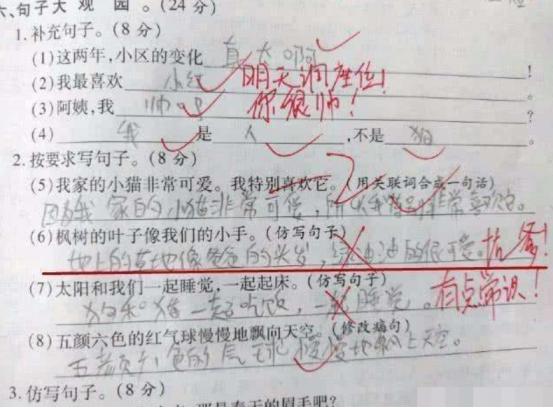 六、句子大观园。(24分)
1.补充句子。(8分)
(1)这两年,小区的变化真大啊!
(2)我最喜欢小红。明天调座位!
(3)阿姨,我帅吗?你很帅!
(4)我是人,不是狗。
2.按要求写句子。(8分)
(5)我家的小猫非常可爱。我特别喜欢它。(用关联词合成一句话)
因为我家的小猫非常可爱,所以我非常喜欢。
(6)枫树的叶子像我们的小手。(仿写句子)
地上的草地像爸爸的头发,
(7)太阳和我们一起睡觉,一起起床。(仿写句子)有点常识!
狗和猪一起吃饭,一起睡觉。
(8)五颜六色的红气球慢慢地飘向天空。(修改病句)
五颜六色的气球慢慢地飘上天空。
3.仿写句子。(8分)